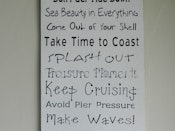 Don't Get Tide Down
Sea Beauty in Everything
Come Out of Your Shell
Take Time to Coast
splash out
Treasure Moments
Keep Cruising
Avoid Pier Pressure
Make Waves!